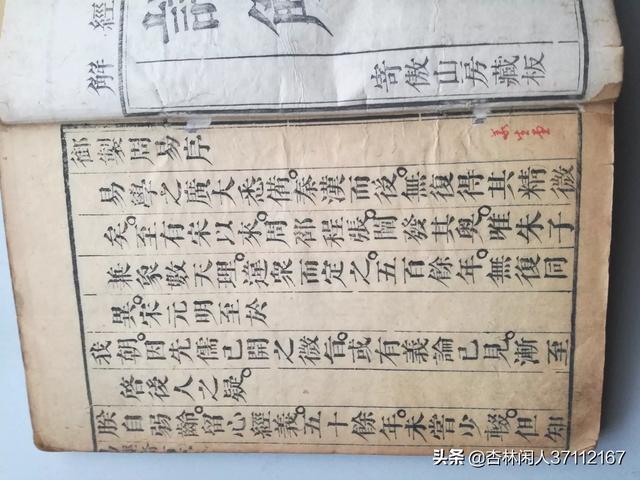 經解
寄傲山房藏板
御製周易序
易學之廣大悉備。秦漢而後。無復得其精微
矣。至有宋以來。周邵程張闡發其奧。唯朱子
兼象數天理。違衆而定之。五百餘年。無復同
異。宋元明至於
我朝。因先儒已開之微旨。或有議論已見。漸至
啓後人之疑。
朕自弱齡。留心經義。五十餘年。未嘗少輟。但知
头条 @杏林闲人37112167